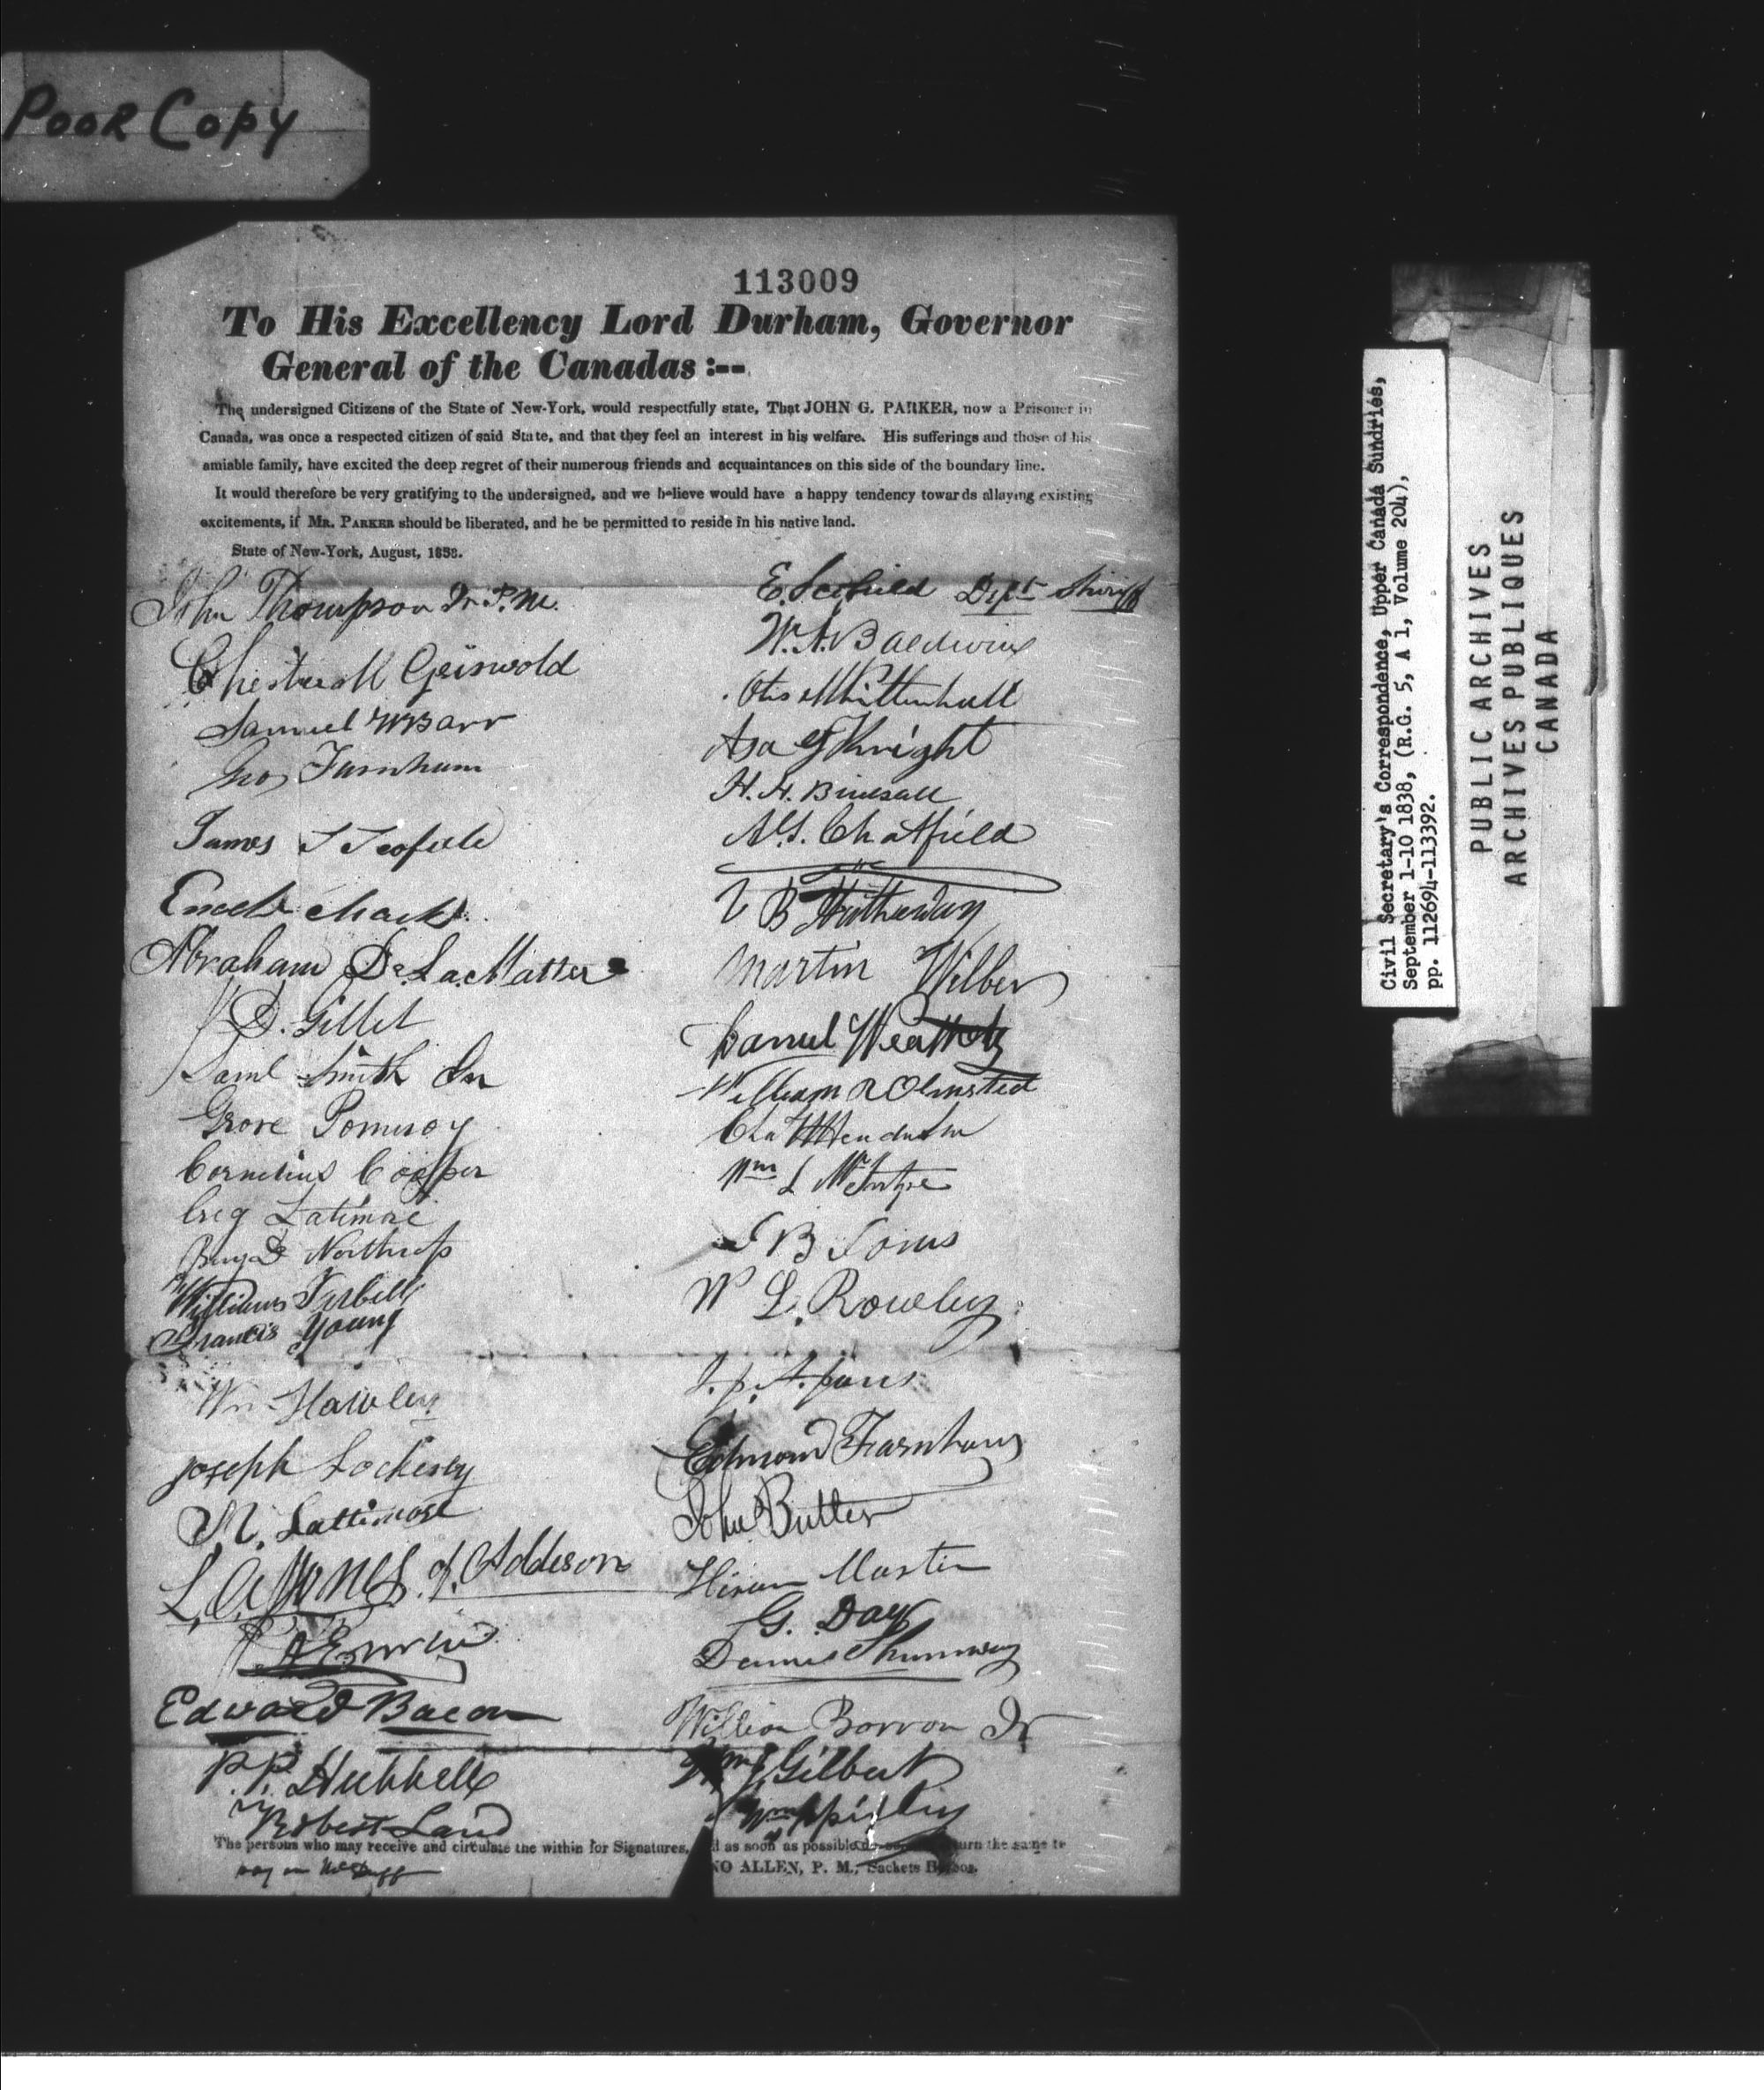 POOR COPY
113009
To His Excellency Lord Durham, Governor
General of the Canadas :--
The undersigned Citizens of the State of New-York, would respectfully state, That JOHN G. PARKER, now a Prisoner in
Canada, was once a respected citizen of said State, and that they feel an interest in his welfare. His sufferings and those of his
amiable family, have excited the deep regret of their numerous friends and acquaintances on this side of the boundary line.
It would therefore be very gratifying to the undersigned, and we believe would have a happy tendency towards allaying existing
excitements, if MR. PARKER should be liberated, and he be permitted to reside in his native land.
State of New-York, August, 1838.
John Thompson Jr P.M.
Griswold
Samuel W Barr
Farnham
James
Enoch Mack
Abraham De LaMatter
D. Gillet
Saml Smith Jr
Grove Pomeroy
Cornelius Cooper
Latimore
Northrop
William Tirbell
Francis Young
Wm Hawley
Joseph Lockerby
M. Lattimore
L. A. Jones of Addison
Erwin
Edward Bacon
P. P. Hubbell
Robert Land
E. Scofield Dept Shiriff
W. A. Baldwin
Otis Whittenhall
Asa G Knight
H. H. Birdsall
A. S. Chatfield
B Hathaway
Martin Wilber
Daniel
William R Olmsted
Wm L McIntyre
B
W L. Rowley
Edmond Farnham
John Butler
Hiram Mastin
G. Day
Dennis Shumway
William Borron Jr
Gilbert
Wm
The persons who may receive and circulate the within for Signatures, as soon as possible return the same to
ALLEN, P. M., Sackets Harbor.
Civil Secretary's Correspondence, Upper Canada Sundries,
September 1-10 1838, (R.G. 5, A 1, Volume 204),
pp. 112694-113392.
PUBLIC ARCHIVES
ARCHIVES PUBLIQUES
CANADA